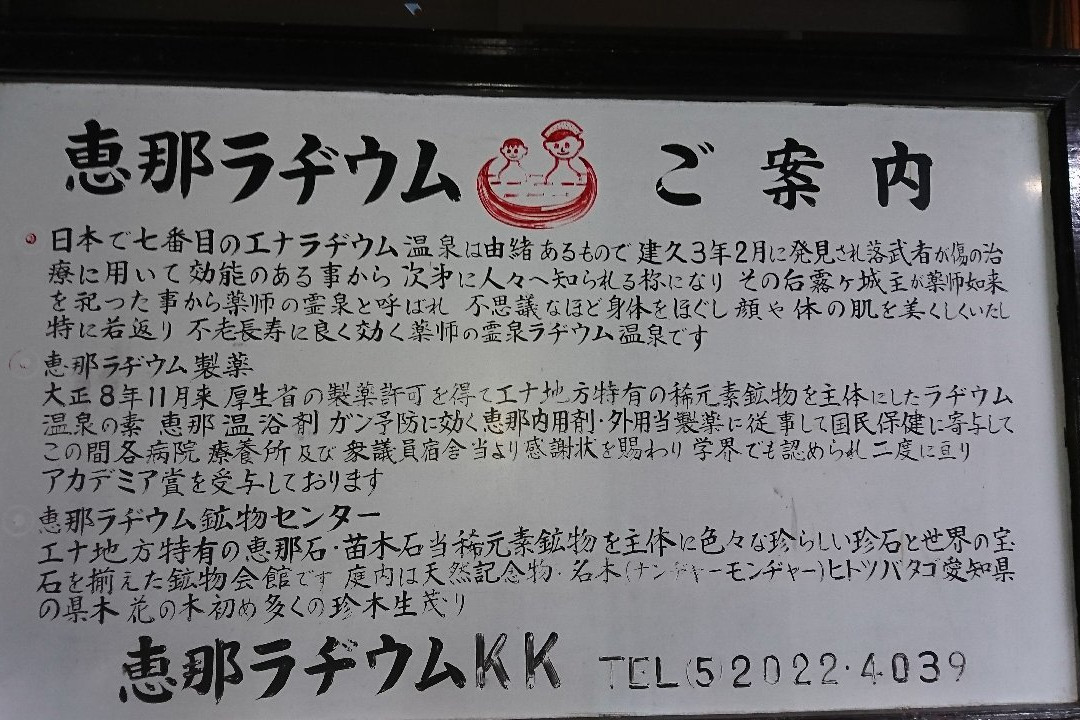 恵那ラヂウム ご案内
日本で七番目のエナラヂウム温泉は由緒あるもので 建久3年2月に発見され落武者が傷の治
療に用いて効能のある事から 次才に人々へ知られる称になり その后霧ヶ城主が薬師如来
を祀った事から薬師の霊泉と呼ばれ 不思議なほど身体をほぐし 顔や体の肌を美くしくいたし
特に若返り 不老長寿に良く効く薬師の霊泉ラヂウム温泉です
恵那ラヂウム製薬
大正8年11月来厚生省の製薬許可を得てエナ地方特有の稀元素鉱物を主体にしたラヂウム
温泉の素 恵那温浴剤 ガン予防に効く恵那内用剤・外用当製薬に従事して国民保健に寄与して
この間各病院 療養所及び衆議員宿舎当より感謝状を賜わり 学界でも認められ二度に亘り
アカデミア賞を受与しております
恵那ラヂウム鉱物センター
エナ地方特有の恵那石・苗木石当稀元素鉱物を主体に色々な珍らしい珍石と世界の宝
石を揃えた鉱物会館です 庭内は天然記念物・名木(ナンヂャーモンヂャー)ヒトツバタゴ愛知県
の県木 花の木初め多くの珍木生茂り
恵那ラヂウムKK TEL(5)2022・4039